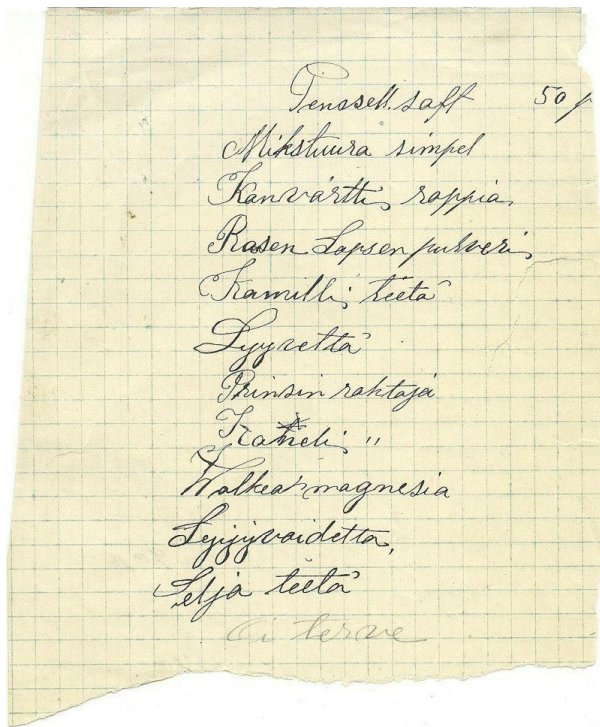 Penssell. saft 50 p
Mikstuura simpel
Kanvärtti roppia
Rasen Lapsen pulveri
Kamilli teetä
Lyyrettä
Prinsin roktaja
Kaneli "
Walkea magnesia
Lyijyvoidetta,
Selja teetä
Oi terve